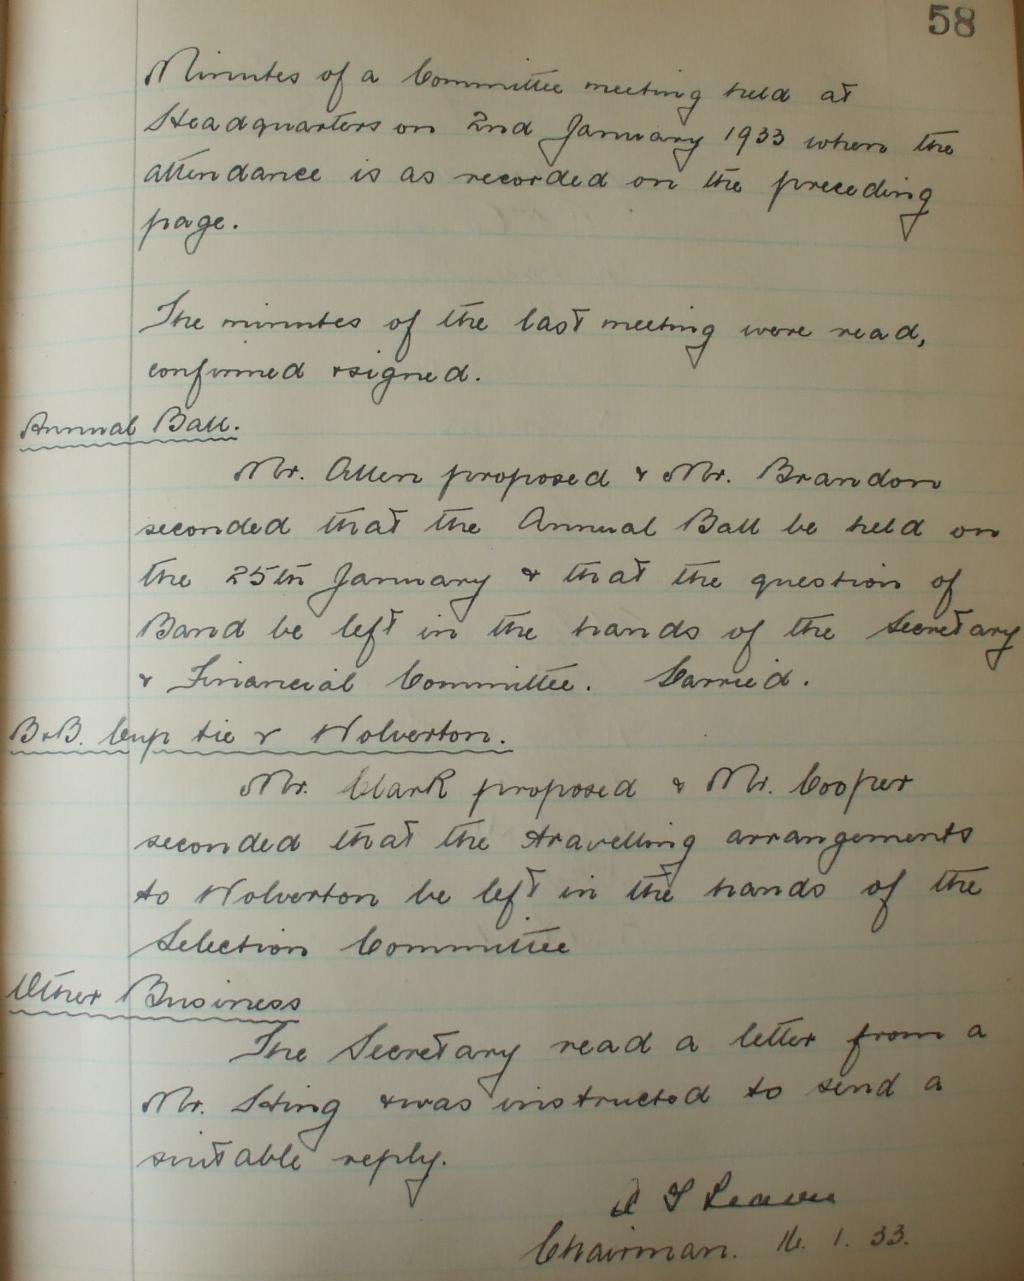 58
Minutes of a Committee meeting held at
Headquarters on 2nd January 1933 when the
attendance is as recorded on the preceding
page.
The minutes of the last meeting were read,
confirmed & signed.
Annual Ball.
Mr. Allen proposed & Mr. Brandon
seconded that the Annual Ball be held on
the 25th January & that the question of
Band be left in the hands of the Secretary
& Financial Committee. Carried.
B&B. Cup tie v Wolverton.
Mr. Clark proposed & Mr. Cooper
seconded that the travelling arrangements
to Wolverton be left in the hands of the
Selection Committee
Other Business
The Secretary read a letter from a
Mr. & was instructed to send a
suitable reply.
Chairman. 16. 1. 33.